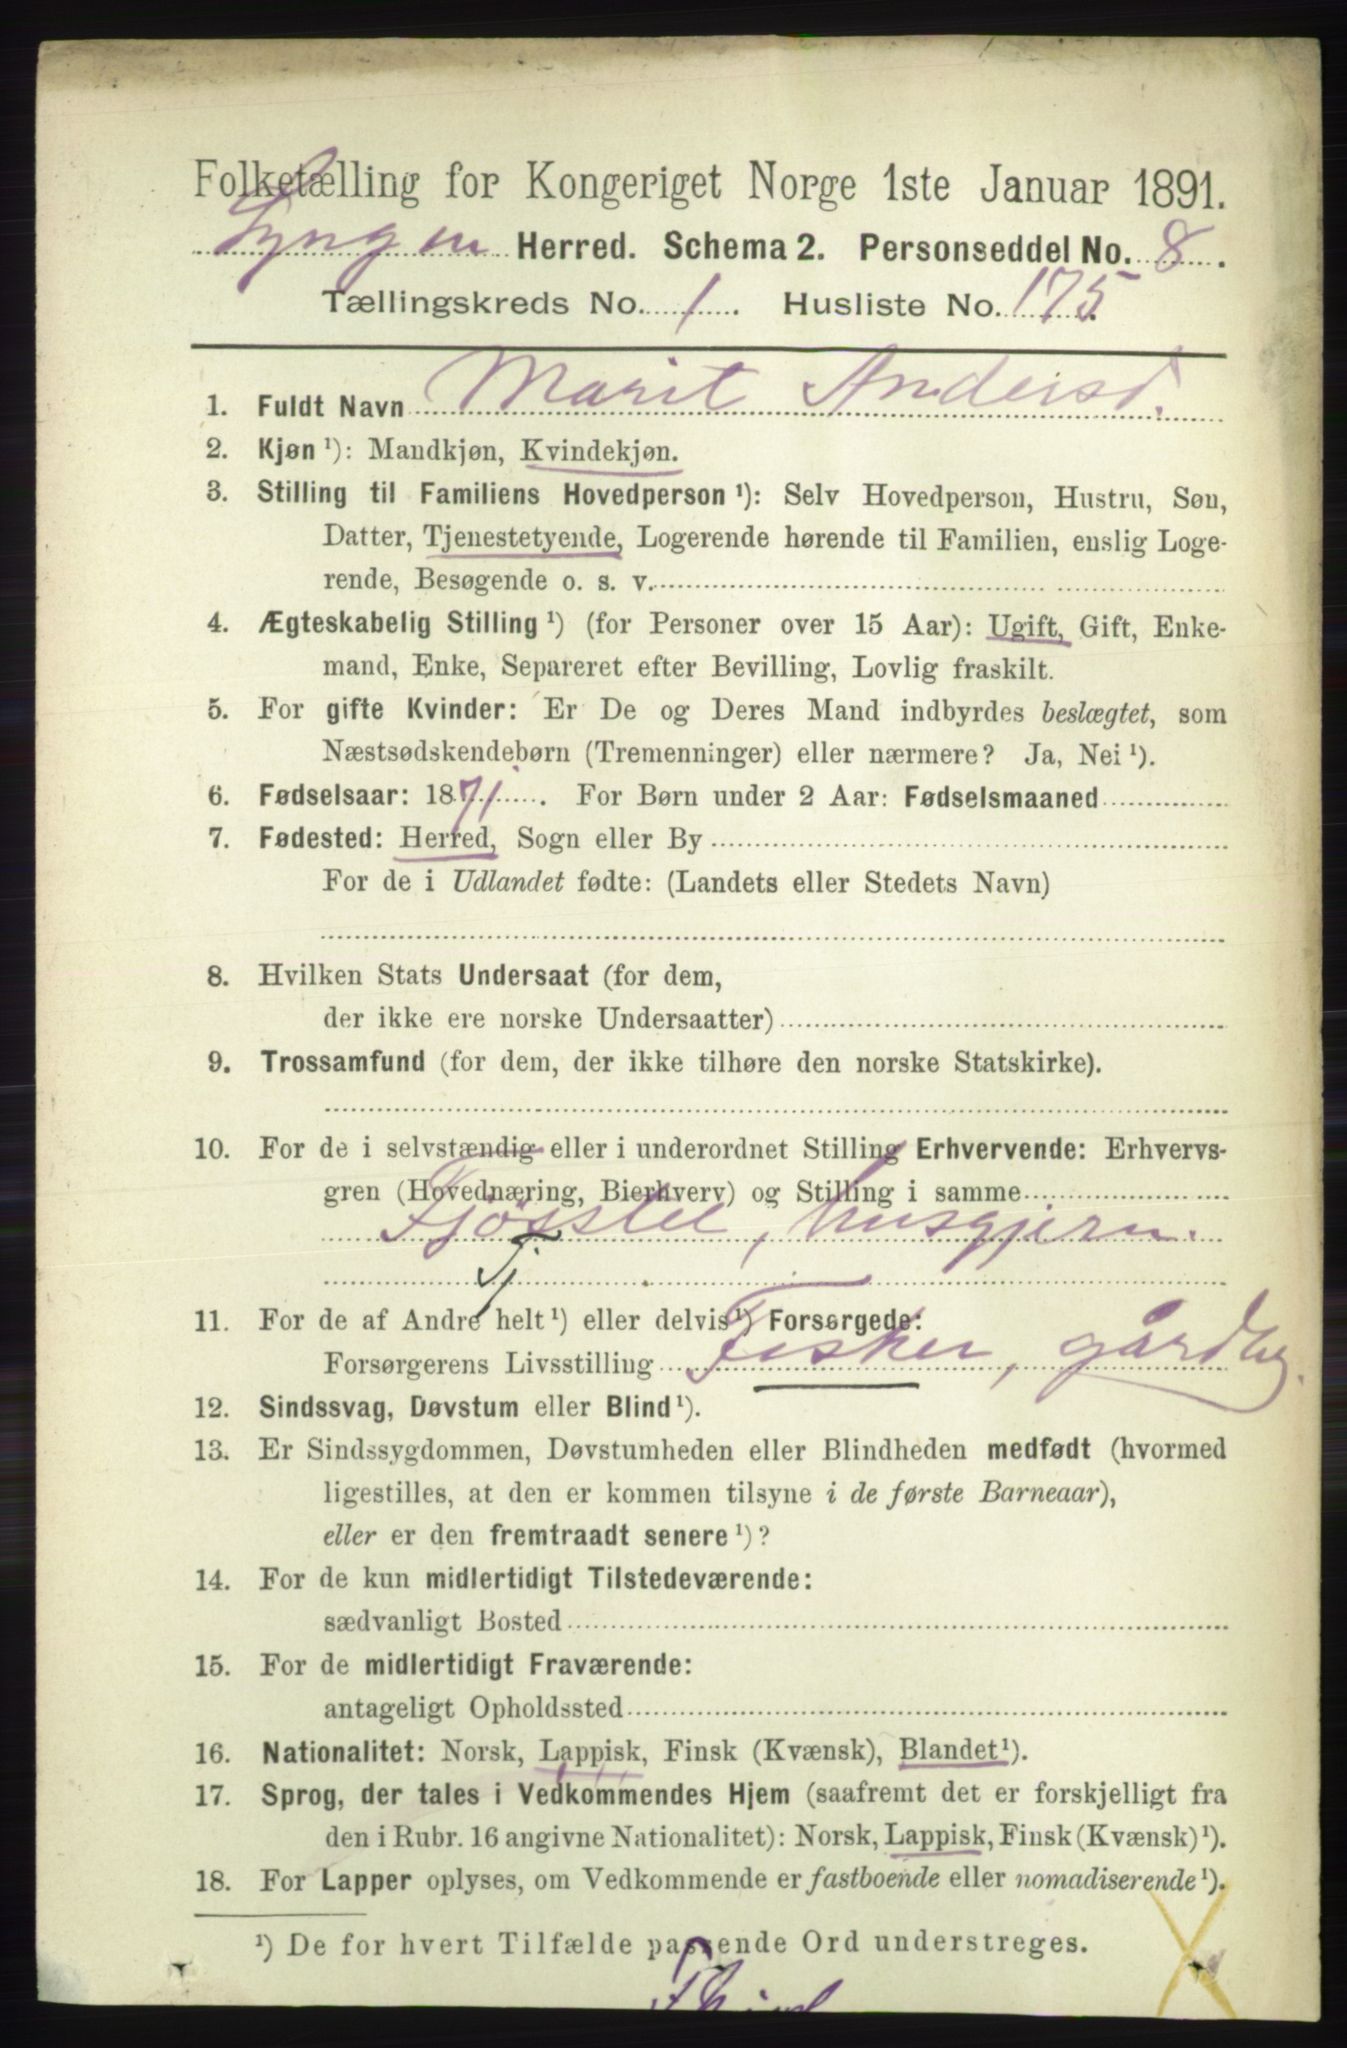 Folketælling for Kongeriget Norge 1ste Januar 1891.
Lyngen Herred. Schema 2. Personseddel No. 8.
Tællingskreds No. 1. Husliste No. 175.
1. Fuldt Navn Marit Andersd.
2. Kjøn ¹): Mandkjøn, Kvindekjøn.
3. Stilling til Familiens Hovedperson ¹): Selv Hovedperson, Hustru, Søn,
Datter, Tjenestetyende, Logerende hørende til Familien, enslig Loge-
rende, Besøgende o. s. v.
4. Ægteskabelig Stilling ¹) (for Personer over 15 Aar): Ugift, Gift, Enke-
mand, Enke, Separeret efter Bevilling, Lovlig fraskilt.
5. For gifte Kvinder: Er De og Deres Mand indbyrdes beslægtet, som
Næstsødskendebørn (Tremenninger) eller nærmere? Ja, Nei ¹).
6. Fødselsaar: 1871. For Børn under 2 Aar: Fødselsmaaned
7. Fødested: Herred, Sogn eller By
For de i Udlandet fødte: (Landets eller Stedets Navn)
8. Hvilken Stats Undersaat (for dem,
der ikke ere norske Undersaatter)
9. Trossamfund (for dem, der ikke tilhøre den norske Statskirke).
10. For de i selvstændig eller i underordnet Stilling Erhvervende: Erhvervs-
gren (Hovednæring, Bierhverv) og Stilling i samme
Fjøsstel, husgjern.
Tj
11. For de af Andre helt ¹) eller delvis ¹) Forsørgede:
Forsørgerens Livsstilling Fisker, gårdbr.
12. Sindssvag, Døvstum eller Blind ¹).
13. Er Sindssygdommen, Døvstumheden eller Blindheden medfødt (hvormed
ligestilles, at den er kommen tilsyne i de første Barneaar),
eller er den fremtraadt senere ¹)?
14. For de kun midlertidigt Tilstedeværende:
sædvanligt Bosted
15. For de midlertidigt Fraværende:
antageligt Opholdssted
16. Nationalitet: Norsk, Lappisk, Finsk (Kvænsk), Blandet ¹).
17. Sprog, der tales i Vedkommendes Hjem (saafremt det er forskjelligt fra
den i Rubr. 16 angivne Nationalitet): Norsk, Lappisk, Finsk (Kvænsk) ¹).
18. For Lapper oplyses, om Vedkommende er fastboende eller nomadiserende ¹).
¹) De for hvert Tilfælde passende Ord understreges.